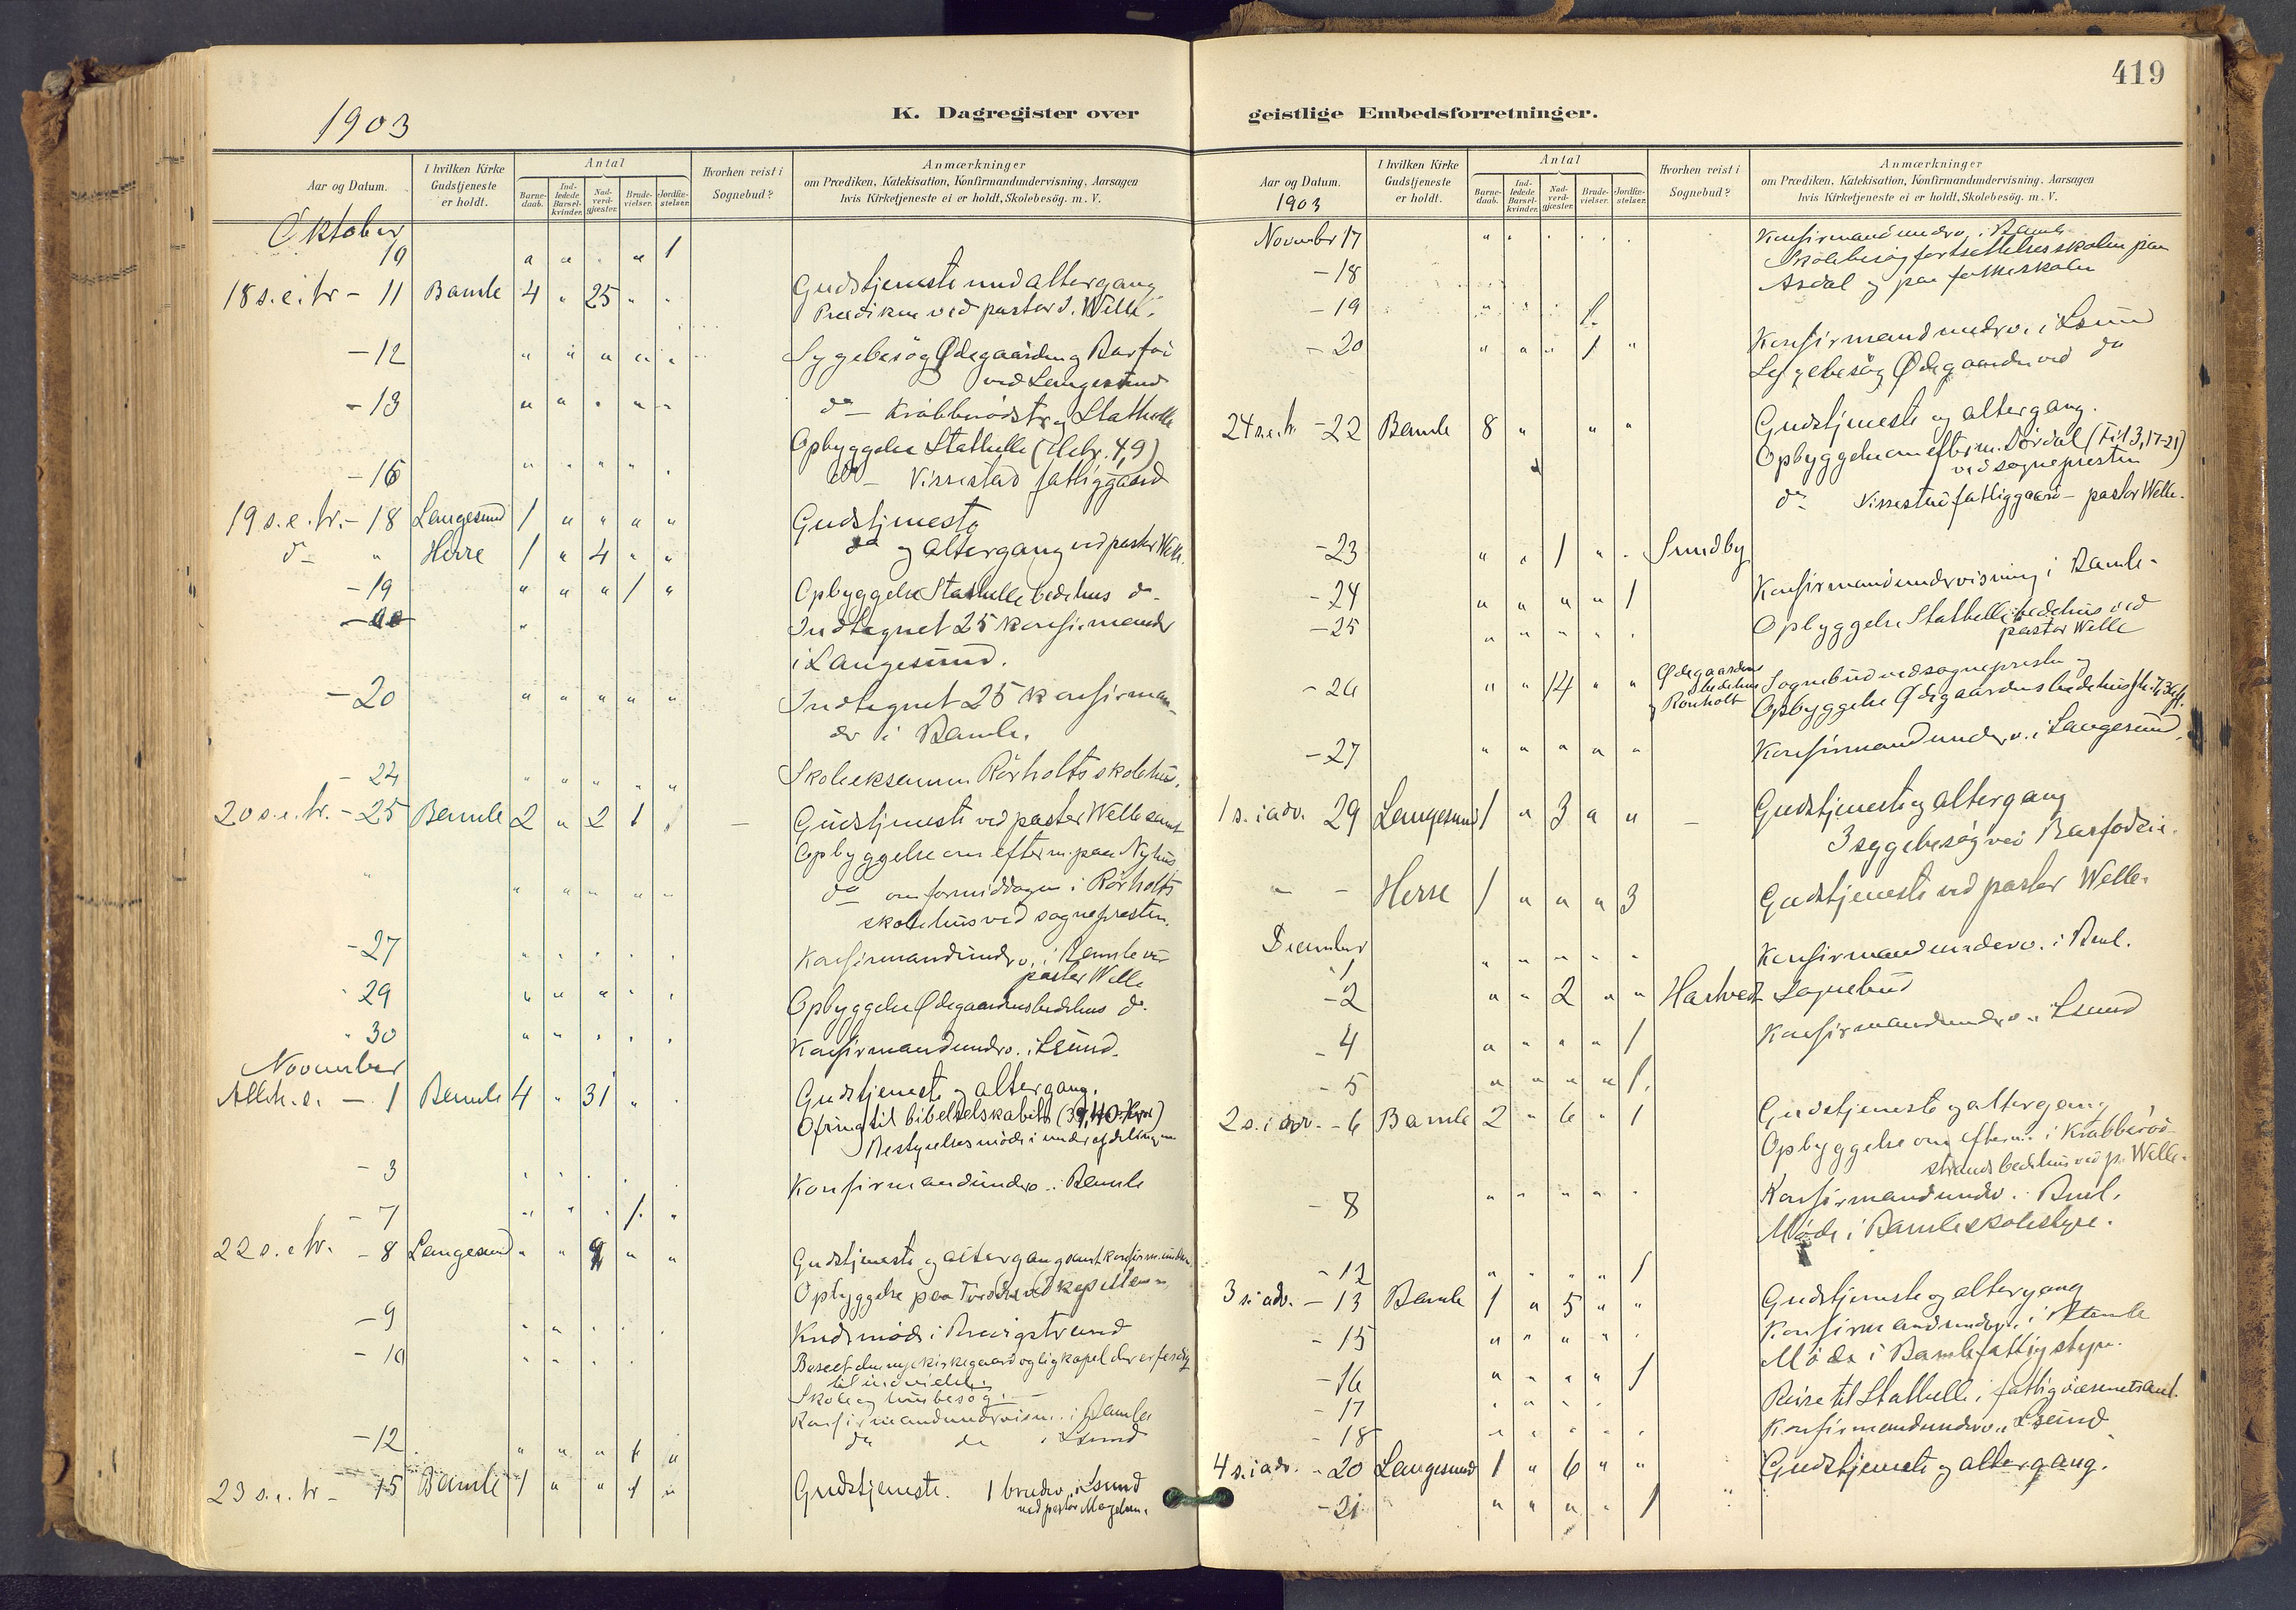 1903
K. Dagregister over
Aar og Datum.
I hvilken Kirke Gudstjeneste er holdt.
Antal
Barne-daab.
Ind-ledede Barsel-kvinder.
Nad-verd-gjæster.
Brude-vielser.
Jordfæ-stelser.
Hvorhen reist i Sognebud?
Anmærkninger
om Prædiken, Katekisation, Konfirmandundervisning, Aarsagen
hvis Kirketjeneste ei er holdt, Skolebesög. m. V.
Oktober
10 " " " " 1
18 s. e. tr - 11 Bamle 4 " 25 " " Gudstjeneste med altergang
Prædiken ved pastor J. Welle.
- 12 " " " " " Sygebesög Ødegaarden og Barföi
ved Langesund
- 13 " " " " " do - Krabberödstr. og Stathelle
Opbyggelse Stathelle (Hebr. 4,9)
- 16 " " " " " do - Vissestad fattiggaard
19 s. e. tr. - 18 Langesund 1 " " " " Gudstjeneste
do " Herre 1 " 4 " " do og altergang ved pastor Welle.
- 19 " " " 1 " Opbyggelse Stathelle bedehus do.
" Indtegnet 25 konfirmander
i Langesund.
- 20 " " " " " Indtegnet 25 konfirman-
der i Bamle.
- 24 " " " " " Skoleeksamen Rörholts skolehus.
20 s. e. tr. - 25 Bamle 2 " 2 1 " - Gudstjeneste ved pastor Welle samt
Opbyggelse om efterm. paa Nyhus
" " " " " " do om formiddagen i Rörholts
skolehus ved sognepresten.
- 27 " " " " " Konfirmandunderv. i Bamle ved
pastor Welle
- 29 " " " " " Opbyggelse Ødegaardens bedehus do.
- 30 " " " " " Konfirmandunderv. i Lsund.
November
Alleh. s. - 1 Bamle 4 " 31 " " Gudstjeneste og altergang.
Ofring til bibelselskabet
Bestyrelsesmöde i
- 3 " " " " " Konfirmandunderv. i Bamle
- 7 " " " 1 "
22 s. e. tr. - 8 Langesund " " " " Gudstjeneste og altergang samt
Opbyggelse paa
- 9 " " " " "
- 10 " " " " Beseet den nye kirkegaard og ligkapel der er færdig
til indvielse.
Skole og husbesög.
Konfirmandundervisn. i Bamle
- 12 " " " 1 " do do i Lsund
23 s. e. tr - 15 Bamle 1 " " 1 " Gudstjeneste. 1 brudev. i Lsund
ved pastor
419
geistlige Embedsforretninger.
Aar og Datum.
1903
I hvilken Kirke Gudstjeneste er holdt.
Antal
Barne-daab.
Ind-ledede Barsel-kvinder.
Nad-verd-gjæster.
Brude-vielser.
Jordfæ-stelser.
Hvorhen reist i Sognebud?
Anmærkninger
om Prædiken, Katekisation, Konfirmandundervisning, Aarsagen
hvis Kirketjeneste ei er holdt, Skolebesög. m. V.
November 17 " " " " " Konfirmandunderv. i Bamle
Skolebesög fortsættelsesskolen paa
- 18 Asdal og paa folkeskolen
- 19 " " " 1
- 20 " " " 1 " Konfirmandunderv. i Lsund
Sygebesög Ødegaarden ved do
24 s. e. tr. - 22 Bamle 8 " " " Gudstjeneste og altergang.
Opbyggelse om efterm. Dördal (Fil 3,17-21)
ved sognepresten
do - Vissestad fattiggaard - pastor Welle.
- 23 " " 1 " " Sundby
- 24 " " " " 1 Konfirmandundervisning i Bamle.
- 25 " " " " " Opbyggelse Stathelle bedehus ved
pastor Welle
- 26 " " 14 " " Ødegaardens bedehus og Rönholt Sognebud ved sognepresten og
Opbyggelse Ødegaardens bedehus
- 27 " " " " " Konfirmandunderv. i Langesund.
1 s. i adv. 29 Langesund 1 " 3 " " - Gudstjeneste og altergang
3 sygebesög ved
" - Herre 1 " " " 3 Gudstjeneste ved pastor Welle.
December
- 1 " " " " " Konfirmandunderv. i Baml.
- 2 " " 2 " " Hastvedt Sognebud
- 4 " " " " 1 Konfirmandunderv. i Lsund
- 5 " " " " 1
2 s. i adv. - 6 Bamle 2 " 6 " 1 Gudstjeneste og altergang
Opbyggelse om efterm. i Krabberöd-
strands bedehus ved p. Welle.
- 8 " " " " " Konfirmandunderv. i Baml.
Möde i Bamle skolestyre.
- 12 " " " " 1
3 s. i adv. - 13 Bamle 1 " 5 " " Gudstjeneste og altergang
- 15 " " " " " Konfirmandunderv. i Bamle
Möde i Bamle fattigstyre.
- 16 " " " " 1
- 17 " " " " Reise til Stathelle i fattigvæsenets anl.
- 18 " " " " " Konfirmandunderv. i Lsund
4 s. i adv. - 20 Langesund 1 " 6 " " Gudstjeneste og altergang.
- 21 " " " " 1